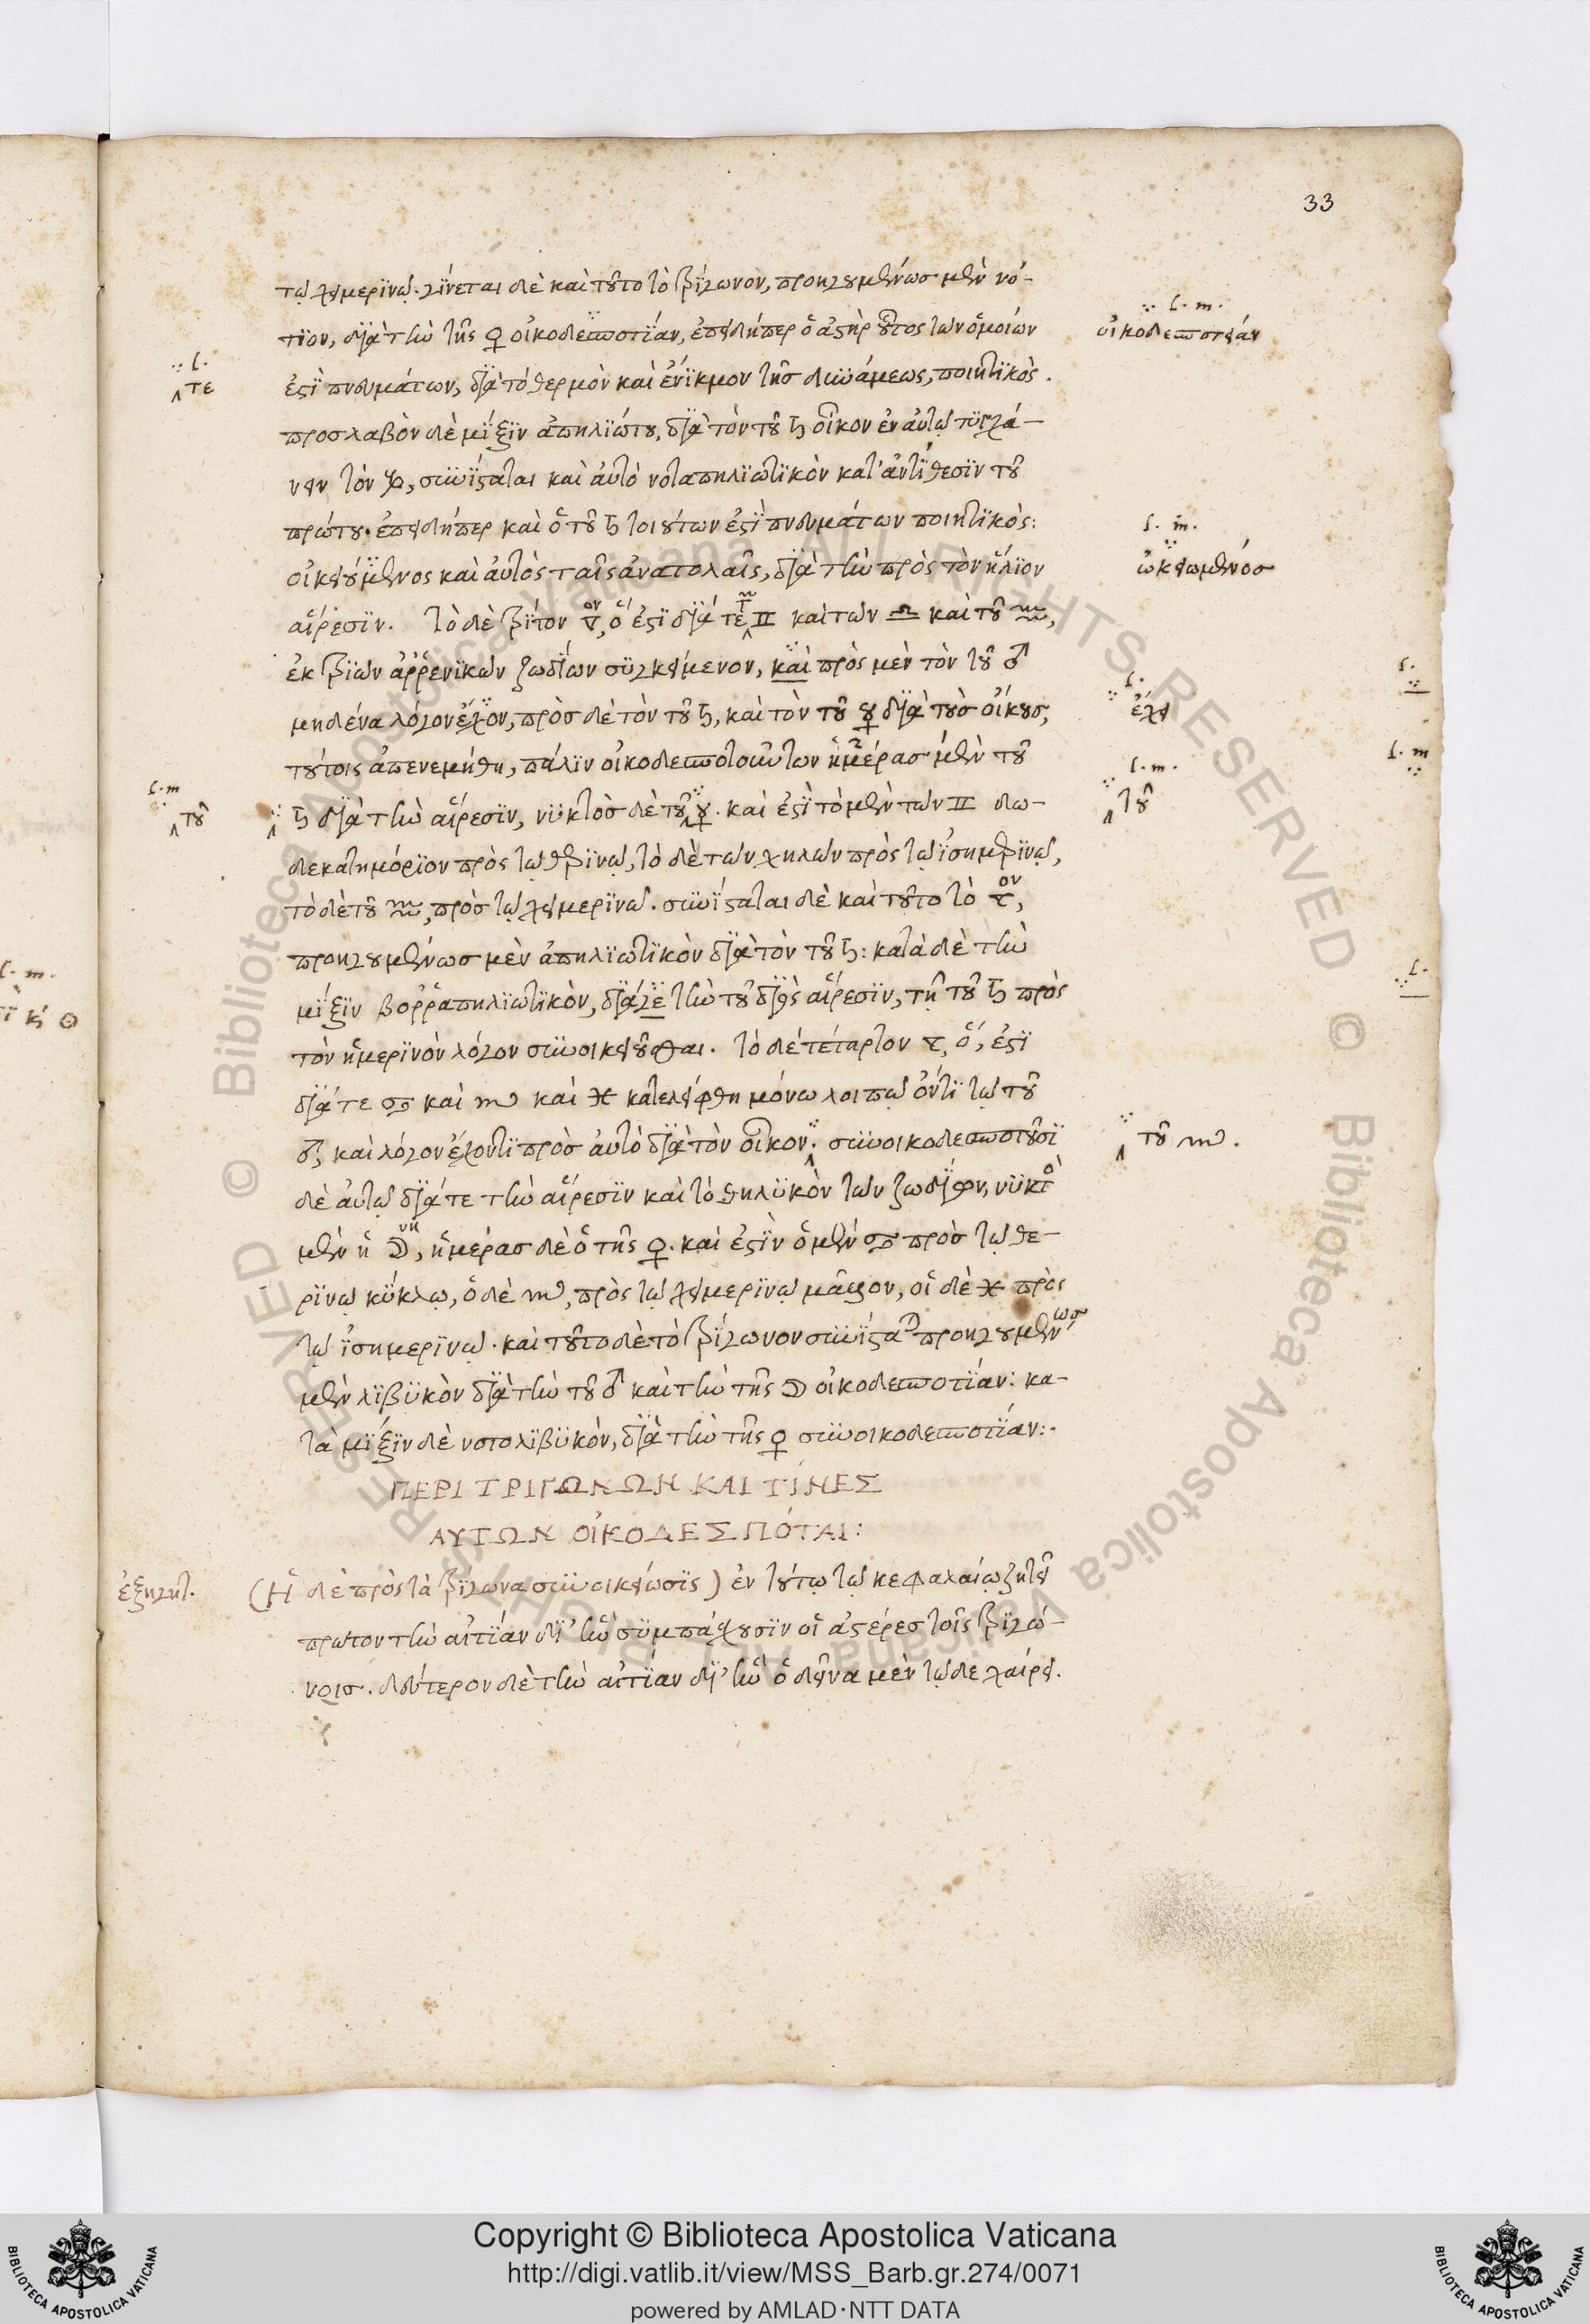 33
τῷ χειμερινῷ. γίνεται δὲ καὶ τοῦτο τὸ τρίγωνον, προηγουμένως μὲν νό-
τιον, διὰ τὴν τῆς ♀ οἰκοδεσποτίαν, ἐπειδήπερ ὁ ἀστὴρ οὗτος τῶν ὁμοίων
ἐστὶ πνευμάτων, διὰ τὸ θερμὸν καὶ ἔνικμον τῆς δυνάμεως, ποιητικὸς.
προσλαβὸν δὲ μίξιν ἀπηλιώτου, διὰ τὸν τοῦ ♄ οἶκον ἐν αὐτῷ τυγχά-
νειν τὸν ♑, συνίσταται καὶ αὐτὸ νοταπηλιωτικὸν κατ' ἀντίθεσιν τοῦ
πρώτου. ἐπειδήπερ καὶ ὁ τοῦ ♄ τοιούτων ἐστὶ πνευμάτων ποιητικὸς:
οἰκειούμενος καὶ αὐτὸς ταῖς ἀνατολαῖς, διὰ τὴν πρὸς τὸν ἥλιον
αἵρεσιν. τὸ δὲ τρίτον ὅ ἐστι διά τε ♊ καὶ τῶν ♎ καὶ τοῦ ♒,
ἐκ τριῶν ἀῤῥενικῶν ζωδίων συγκείμενον, καὶ πρὸς μὲν τὸν τοῦ ♂
μηδένα λόγον ἔχον, πρὸς δὲ τὸν τοῦ ♄, καὶ τὸν τοῦ ☿ διὰ τοὺς οἴκους,
τούτοις ἀπενεμήθη, πάλιν οἰκοδεσποτούντων ἡμέρας μὲν τοῦ
♄ διὰ τὴν αἵρεσιν, νυκτὸς δὲ τοῦ ☿. καὶ ἐστὶ τὸ μὲν τῶν ♊ δω-
δεκατημόριον πρὸς τῷ θερινῷ, τὸ δὲ τῶν χηλῶν πρὸς τῷ ἰσημερινῷ,
τὸ δὲ τοῦ ♒, πρὸς τῷ χειμερινῷ. συνίσταται δὲ καὶ τοῦτο τὸ
προηγουμένως μὲν ἀπηλιωτικὸν διὰ τὸν τοῦ ♄: κατὰ δὲ τὴν
μίξιν βοῤῥαπηλιωτικὸν, διά γε τὴν τοῦ διὸς αἵρεσιν, τῇ τοῦ ♄ πρὸς
τὸν ἡμερινὸν λόγον συνοικειοῦσθαι. τὸ δὲ τέταρτον ὅ, ἐστι
διά τε ♋ καὶ ♏ καὶ ♓ κατελείφθη μόνω λοιπῷ ὄντι τῷ τοῦ
♂, καὶ λόγον ἔχοντι πρὸς αὐτὸ διὰ τὸν οἶκον. συνοικοδεσποτοῦσι
δὲ αὐτῷ διά τε τὴν αἵρεσιν καὶ τὸ θηλυκὸν τῶν ζωδίων, νυκτὸ
μὲν ἡ ☽, ἡμέρας δὲ ὁ τῆς ♀. καὶ ἐστὶν ὁ μὲν ♋ πρὸς τῷ θε-
ρινῷ κύκλῳ, ὁ δὲ ♏, πρὸς τῷ χειμερινῷ μᾶλλον, οἱ δὲ ♓ πρὸς
τῷ ἰσημερινῷ. καὶ τοῦτο δὲ τὸ τρίγωνον συνίσταται προηγουμένως
μὲν λιβυκὸν διὰ τὴν τοῦ ♂ καὶ τὴν τῆς ☽ οἰκοδεσποτίαν: κα-
τὰ μίξιν δὲ νοτολιβυκὸν, διὰ τὴν τῆς ♀ συνοικοδεσποτίαν:.
ΠΕΡΙ ΤΡΙΓΩΝΩΝ ΚΑΙ ΤΊΝΕΣ
ΑΥΤΩΝ ΟἰΚΟΔΕΣΠΌΤΑΙ:
ἐξηγητ. (Ἡ δὲ πρὸς τὰ τρίγωνα συνοικείωσις) ἐν τούτῳ τῷ κεφαλαίῳ ζητεῖ
πρῶτον τὴν αἰτίαν δι' ἣν συμπάσχουσιν οἱ ἀστέρες τοῖς τριγώ-
νοις. δεύτερον δὲ τὴν αἰτίαν δι' ἣν ὁ δεῖνα μὲν τῷδε χαίρει.
l. m.
οἰκοδεσποτείαν
l.
τε
l. m.
ᾠκειωμένος
l.
ἔχει
l.
l. m.
τοῦ
l. m
τοῦ
l. m
l.
τοῦ ♏.
l. m.
Copyright © Biblioteca Apostolica Vaticana
http://digi.vatlib.it/view/MSS_Barb.gr.274/0071
powered by AMLAD·NTT DATA
BIBLIOTECA APOSTOLICA VATICANA
BIBLIOTECA APOSTOLICA VATICANA
© Biblioteca Apostolica Vaticana ALL RIGHTS RESERVED © Biblioteca Apostolica Vaticana ALL RIGHTS RESERVED